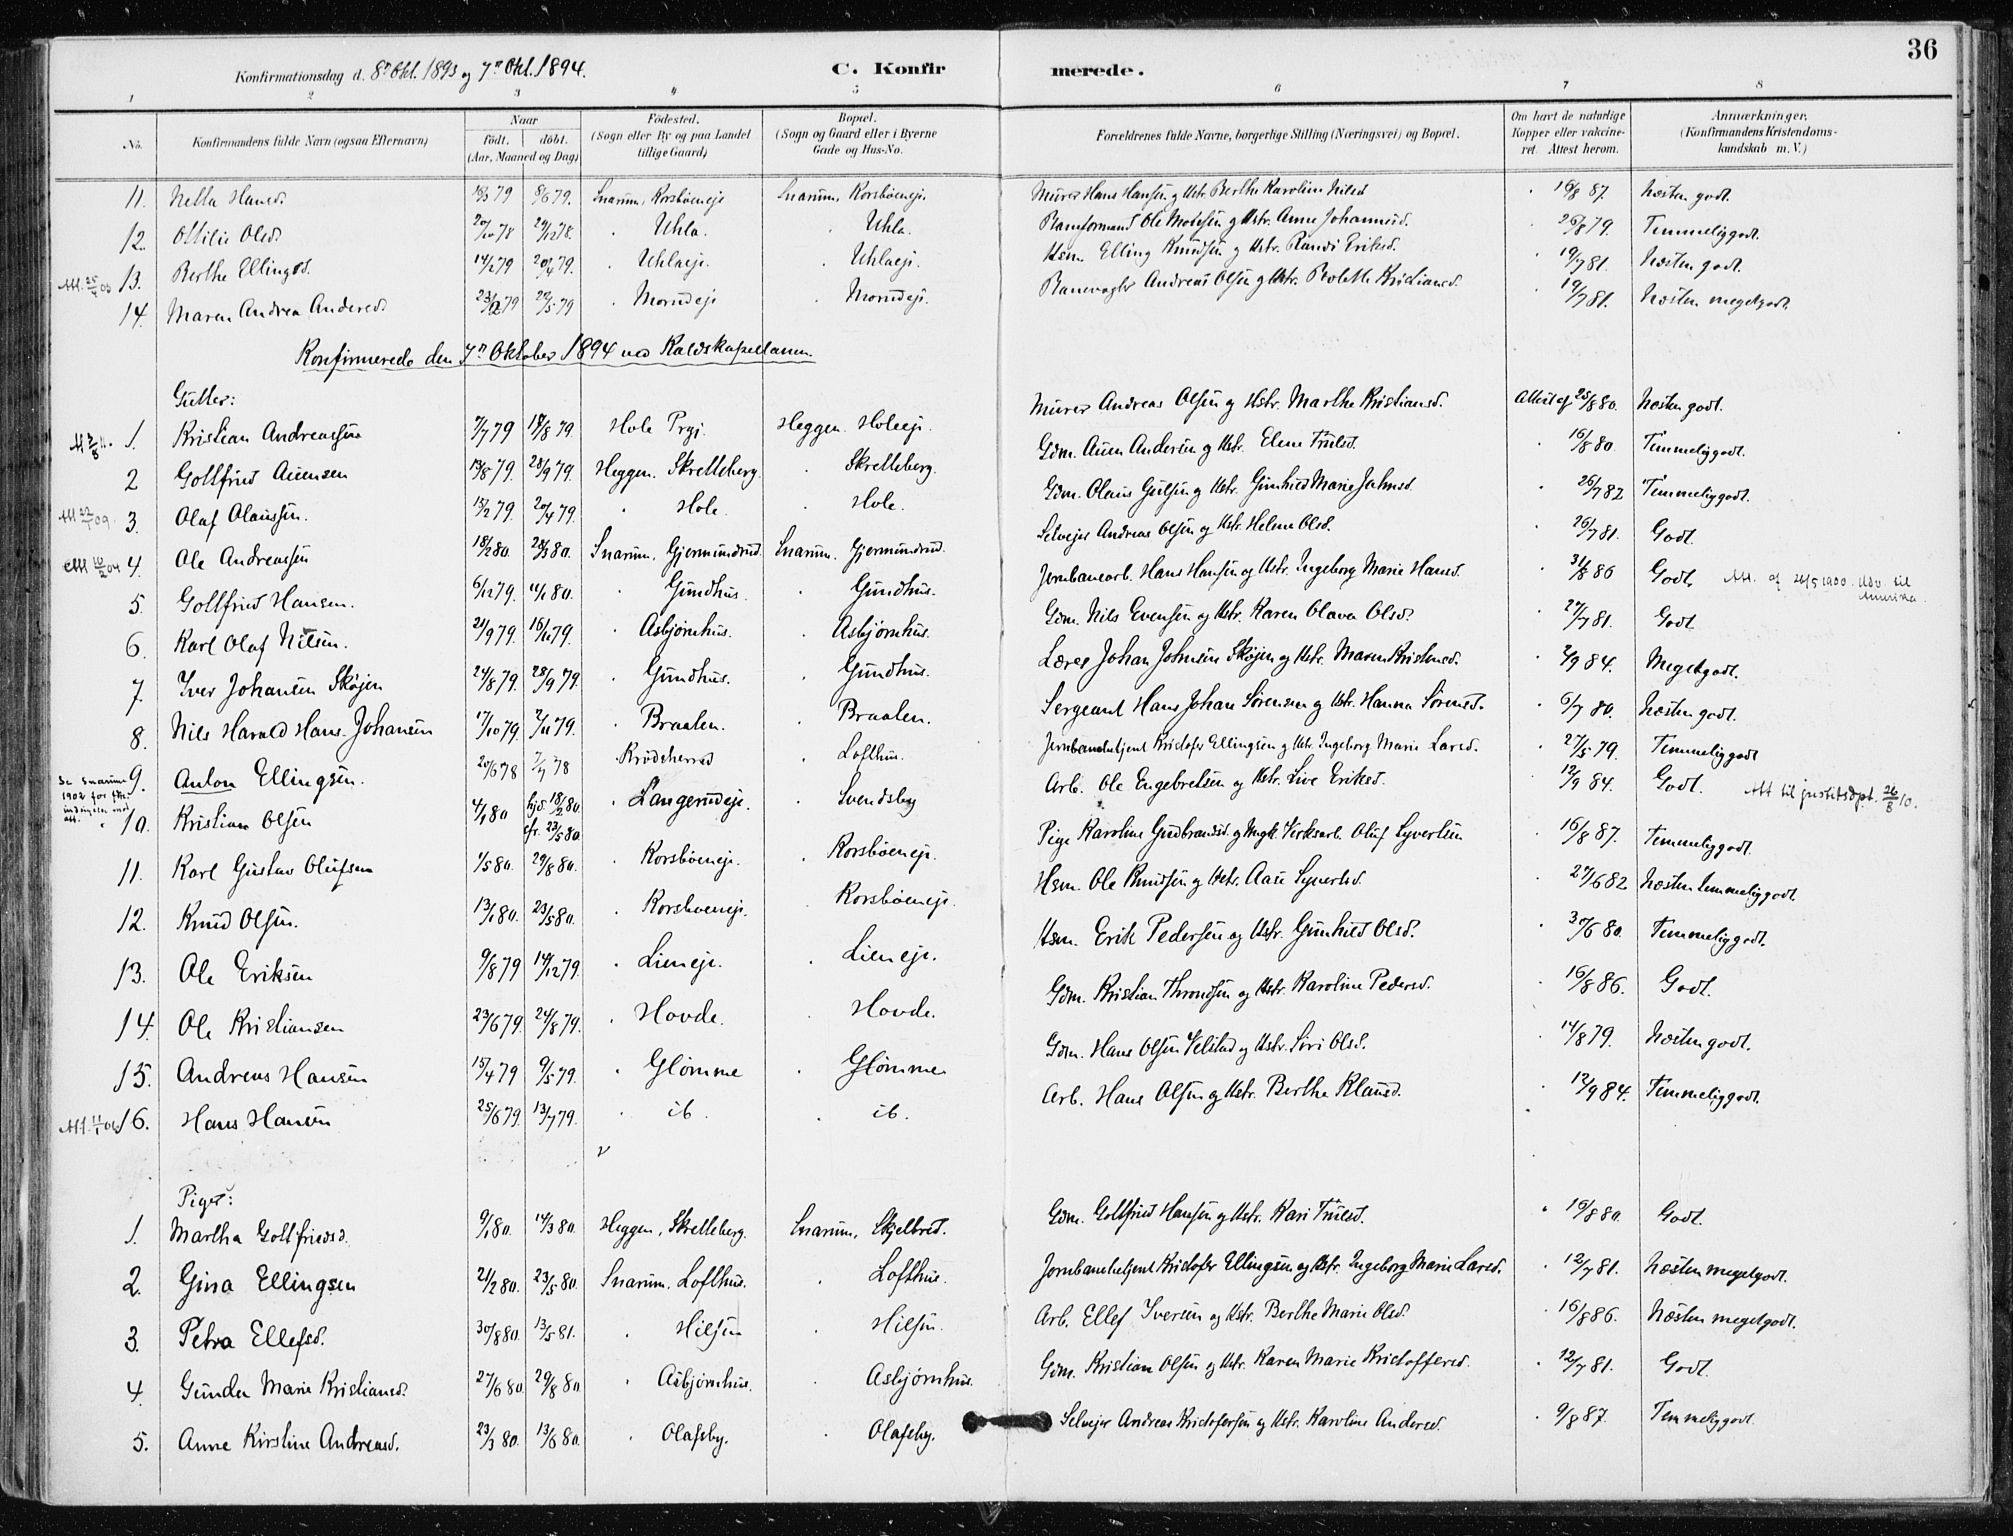 36
Konfirmationsdag d. 8de Okt. 1893 og 7de Okt. 1894.
C. Konfirmerede.
1 2 3 4 5 6 7 8
No. Konfirmandens fulde Navn (ogsaa Efternavn) Naar født. døbt. (Aar, Maaned og Dag) Födested. (Sogn eller By og paa Landet tillige Gaard) Bopæl. (Sogn og Gaard eller i Byerne Gade og Hus-No. Forældrenes fulde Navne, borgerlige Stilling (Næringsvei) og Bopæl. Om havt de naturlige Kopper eller vakcineret. Attest herom. Anmærkninger. (Konfirmandens Kristendomskundskab m. V.)
11. Netta Hansd. 18/3 79 8/6 79. Snarum, Korsbøeneje Snarum, Korsbøeneje. Murer Hans Hansen og Hstr. Berthe Karoline Nilsd. 16/8 87. Næsten godt.
12. Ottilie Olsd. 20/10 78 29/12 78. Uhla. Uhla. Ole Motesen og Hstr. Anne Johannesd. 26/8 79. Temmelig godt.
Att. 25/4 03 13. Berthe Ellingsd. 14/2 79 20/4 79. Uhlaeje. Uhlaeje. Hsm. Elling Knudsen og Hstr. Randi Eriksd. 19/7 81. Næsten godt.
14. Maren Andrea Andersd. 23/2 79 22/5 79 Morudeje Morudeje. Banevogter Andreas Olsen og Hstr. Kristiansd. 19/7 81. Næsten megetgodt.
Konfirmerede den 7de Oktober 1894 ved Kaldskapellanen.
Gutter:
1. Kristian Andreassen 7/7 79 17/8 79. Hole Prgj. Heggen. Holeeje. Murer Andreas Olsen og Hstr. Marthe Kristiansd. Attest af 25/8 80. Næsten godt.
2 Gottfried Auensen 13/8 79. 28/9 79. Heggen. Skretteberg. Skretteberg. Gdm. Auen Andersen og Hstr. Elene Truesd. 16/8 80. Temmeliggodt.
Att 22/1 09. 3. Olaf Olaussen. 13/2 79. 20/4 79. Hole. Hole. Gdm. Olaus Gulsen og Hstr. Gunhild Marie Johnsd. 26/7 82 Temmeliggodt.
Att 10/2 04 4. Ole Andreassen 18/2 80. 28/3 80. Snarum, Gjermundrud. Snarum. Gjermundrud. Selvejer Andreas Olsen og Hstr. Helene Olsd. 26/7 81. Godt.
5. Gottfried Hansen. 6/12 79. 11/1 80. Gundhus. Gundhus. Jernbanearb. Hans Hansen og Hstr. Ingeborg Marie Hansd. 31/8 86 Godt, Att. af 21/5 1900. Udv. til Amerika.
6. Karl Olaf Nilsen. 21/9 79. 16/11 79. Asbjørnhus. Asbjørnhus. Gdm. Nils Evensen og Hstr. Karen Olava Olsd. 27/7 81. Godt
7. Iver Johansen Skøjen 24/8 79. 28/9 79. Gundhus. Gundhus. Lærer Johan Johnsen Skøjen og Hstr. Maren Kristined. 2/9 84. Megetgodt.
8. Nils Harald Hans. Johansen 17/10 79. 2/11 79. Braaten. Braaten. Sergeant Hans Johan Sørensen og Hstr. Hanna Sørensd. 6/7 80. Næsten godt.
9. Anton Ellingsen. 20/6 78 7/7 78 Krødsherred Lofthus. Jernbanebetjent Kristofer Ellingsen og Hstr. Ingeborg Marie Larsd. 27/5 79. Temmeliggodt
Se Snarum 1902 10. Kristian Olsen 4/1 80 hjd. 18/2 80. cfr. 23/5 80 Langerudeje. Svendsby Arb. Ole Engebretsen og Hstr. Live Eriksd. 12/9 84. Godt. Att til justitsdpt. 26/8 10.
11. Karl Gustav Olufsen 1/5 80. 29/8 80. Korsbøeneje. Korsbøeneje. Pige Karoline Gudbrandsd. og Ungk. Verksarb. Oluf Syvertsen 16/8 87. Temmeliggodt.
12. Knud Olsen. 13/1 80. 23/5 80. Korsbøeneje. Korsbøeneje. Hsm. Ole Knudsen og Hstr. Aase Syvertsd. 27/6 82 Næsten temmeliggodt.
13. Ole Eriksen 9/8 79 14/12 79. Lieneje. Lieneje. Hsm. Erik Pedersen og Hstr. Gunhild Olsd. 30/6 80. Temmeliggodt.
14. Ole Kristiansen 23/6 79. 24/8 79. Hovde. Hovde. Gdm. Kristian Throndsen og Hstr. Karoline Pedersd. 16/8 86. Godt.
15. Andreas Hansen 15/4 79 9/5 79. Glomme Glomme Gdm. Hans Olsen Velstad og Hstr. Siri Olsd. 14/8 79. Næsten godt.
Att. 11/1 06 16. Hans Hansen 25/6 79. 13/7 79. ib. ib. Arb. Hans Olsen og Hstr. Berthe Klausd. 12/9 84. Temmeliggodt.
Piger:
1. Martha Gottfriedsd. 9/1 80. 14/3 80. Heggen, Skretteberg. Snarum, Skjelbred. Gdm. Gottfried Hansen og Hstr. Kari Truesd. 16/8 80. Godt.
2. Gina Ellingsen 21/2 80. 23/5 80. Snarum. Lofthus. Lofthus. Jernbanebetjent Kristofer Ellingsen og Hstr. Ingeborg Marie Larsd. 12/7 81. Næsten megetgodt.
3. Petra Ellefsd. 30/8 80. 13/5 81. Hilsen Hilsen. Arb. Ellef Iversen og Hstr. Berthe Marie Olsd. 16/8 86. Næsten megetgodt.
4. Gunda Marie Kristiansd. 27/6 80. 29/8 80 Asbjørnhus. Asbjørnhus. Gdm. Kristian Olsen og Hstr. Karen Marie Kristoffersd. 12/7 81. Godt
5. Anne Kirstine Andreasd. 23/3 80. 13/6 80. Olafsby. Olafsby. Selvejer Andreas Kristofersen og Hstr. Karoline Andersd. 9/8 87. Temmeliggodt.